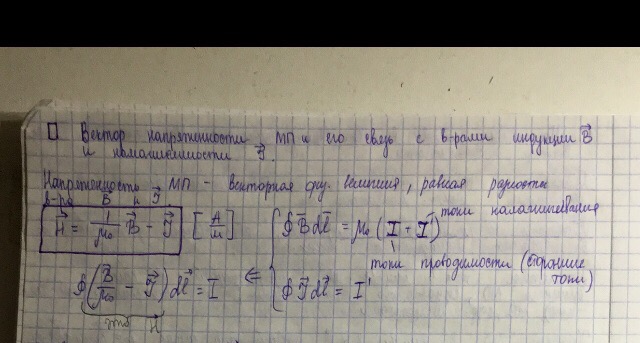 Вектор напряженности МП и его связь с в-рами индукции B⃗
и намагниченности J⃗.
Напряженность МП - векторная физ. величина, равная разности
в-ров B⃗ и J⃗
H⃗ = 1/μ₀ B⃗ - J⃗ [А/м]
∮B⃗dl⃗ = μ₀ (I + I') токи намагничивания
токи проводимости (сторонние токи)
∮(B⃗/μ₀ - J⃗) dl⃗ = I ⇐ ∮J⃗dl⃗ = I'
это H⃗